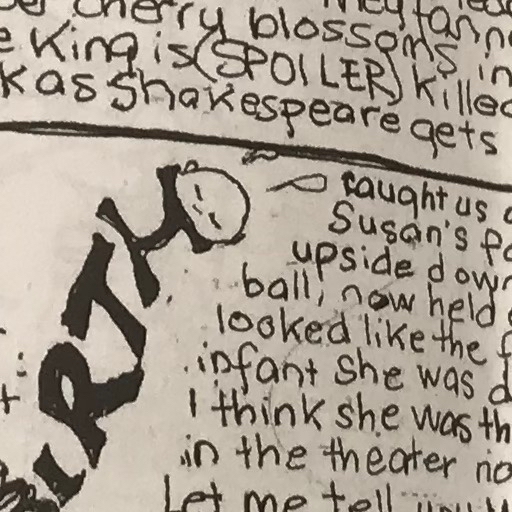 cherry blossoms in
e King is (SPOILER) killed
k as Shakespeare gets
BIRTH
caught us
Susan's
upside down
ball, now held
looked like the
infant she was
I think she was th
in the theater no
Let me tell